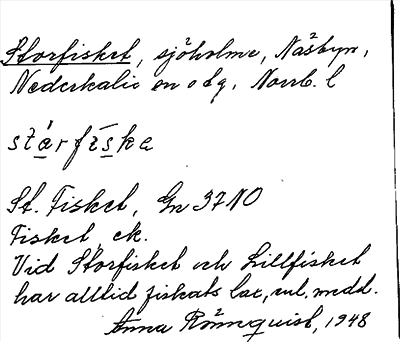 Storfisket, sjöholme, Näsbyn,
Nederkalix en o dg, Norrb. l
stárfiska
St. Fisket, Gn 37 NO
Fisket, ek.
Vid Storfisket och Lillfisket
har alltid fiskats lax, enl. medd.
Anna Rönnquist, 1948